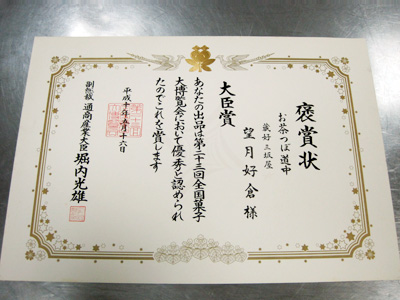 褒賞状
お茶つぼ道中
蔵好三坂屋
望月好倉様
大臣賞
あなたの出品は第二十三回全国菓子
大博覧会において優秀と認められ
たのでこれを賞します
平成十年五月十六日
副総裁 通商産業大臣 堀内光雄